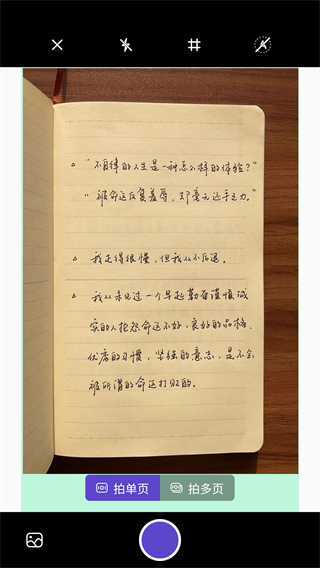 "不自律的人生是一种怎么样的体验?"
"被命运反复羞辱,却毫无还手之力。"
我走得很慢,但我从不后退。
我从未见过一个早起勤奋谨慎诚
实的人抱怨命运不好,良好的品格,
优秀的习惯,坚强的意志,是不会
被所谓的命运打败的。
拍单页 拍多页